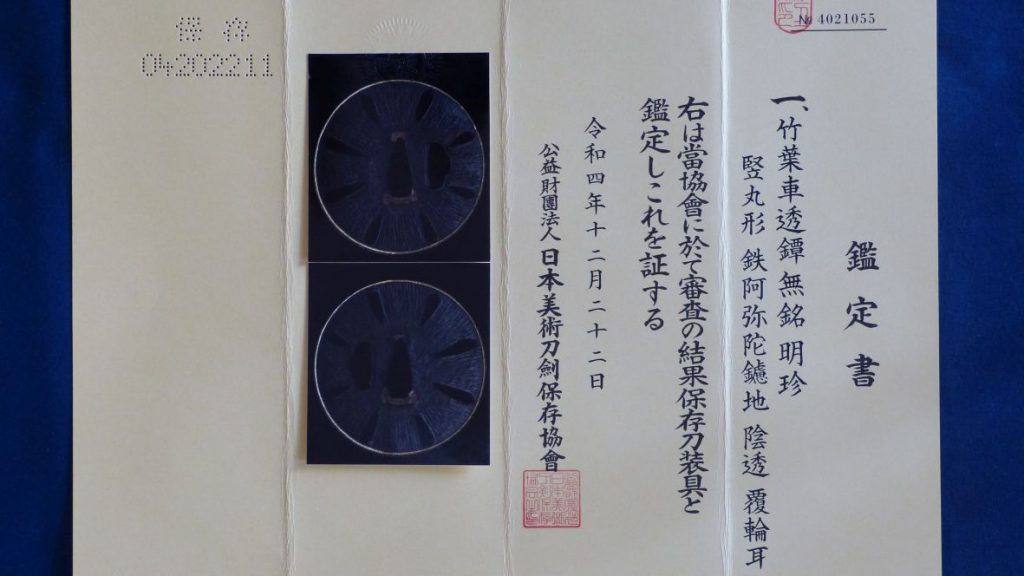 № 4021055
鑑定書
一、竹葉車透鐔 無銘 明珍
竪丸形 鉄阿弥陀鑢地 陰透 覆輪耳
右は當協會に於て審査の結果保存刀装具と
鑑定しこれを証する
令和四年十二月二十二日
公益財團法人 日本美術刀劍保存協會
保存
04202211